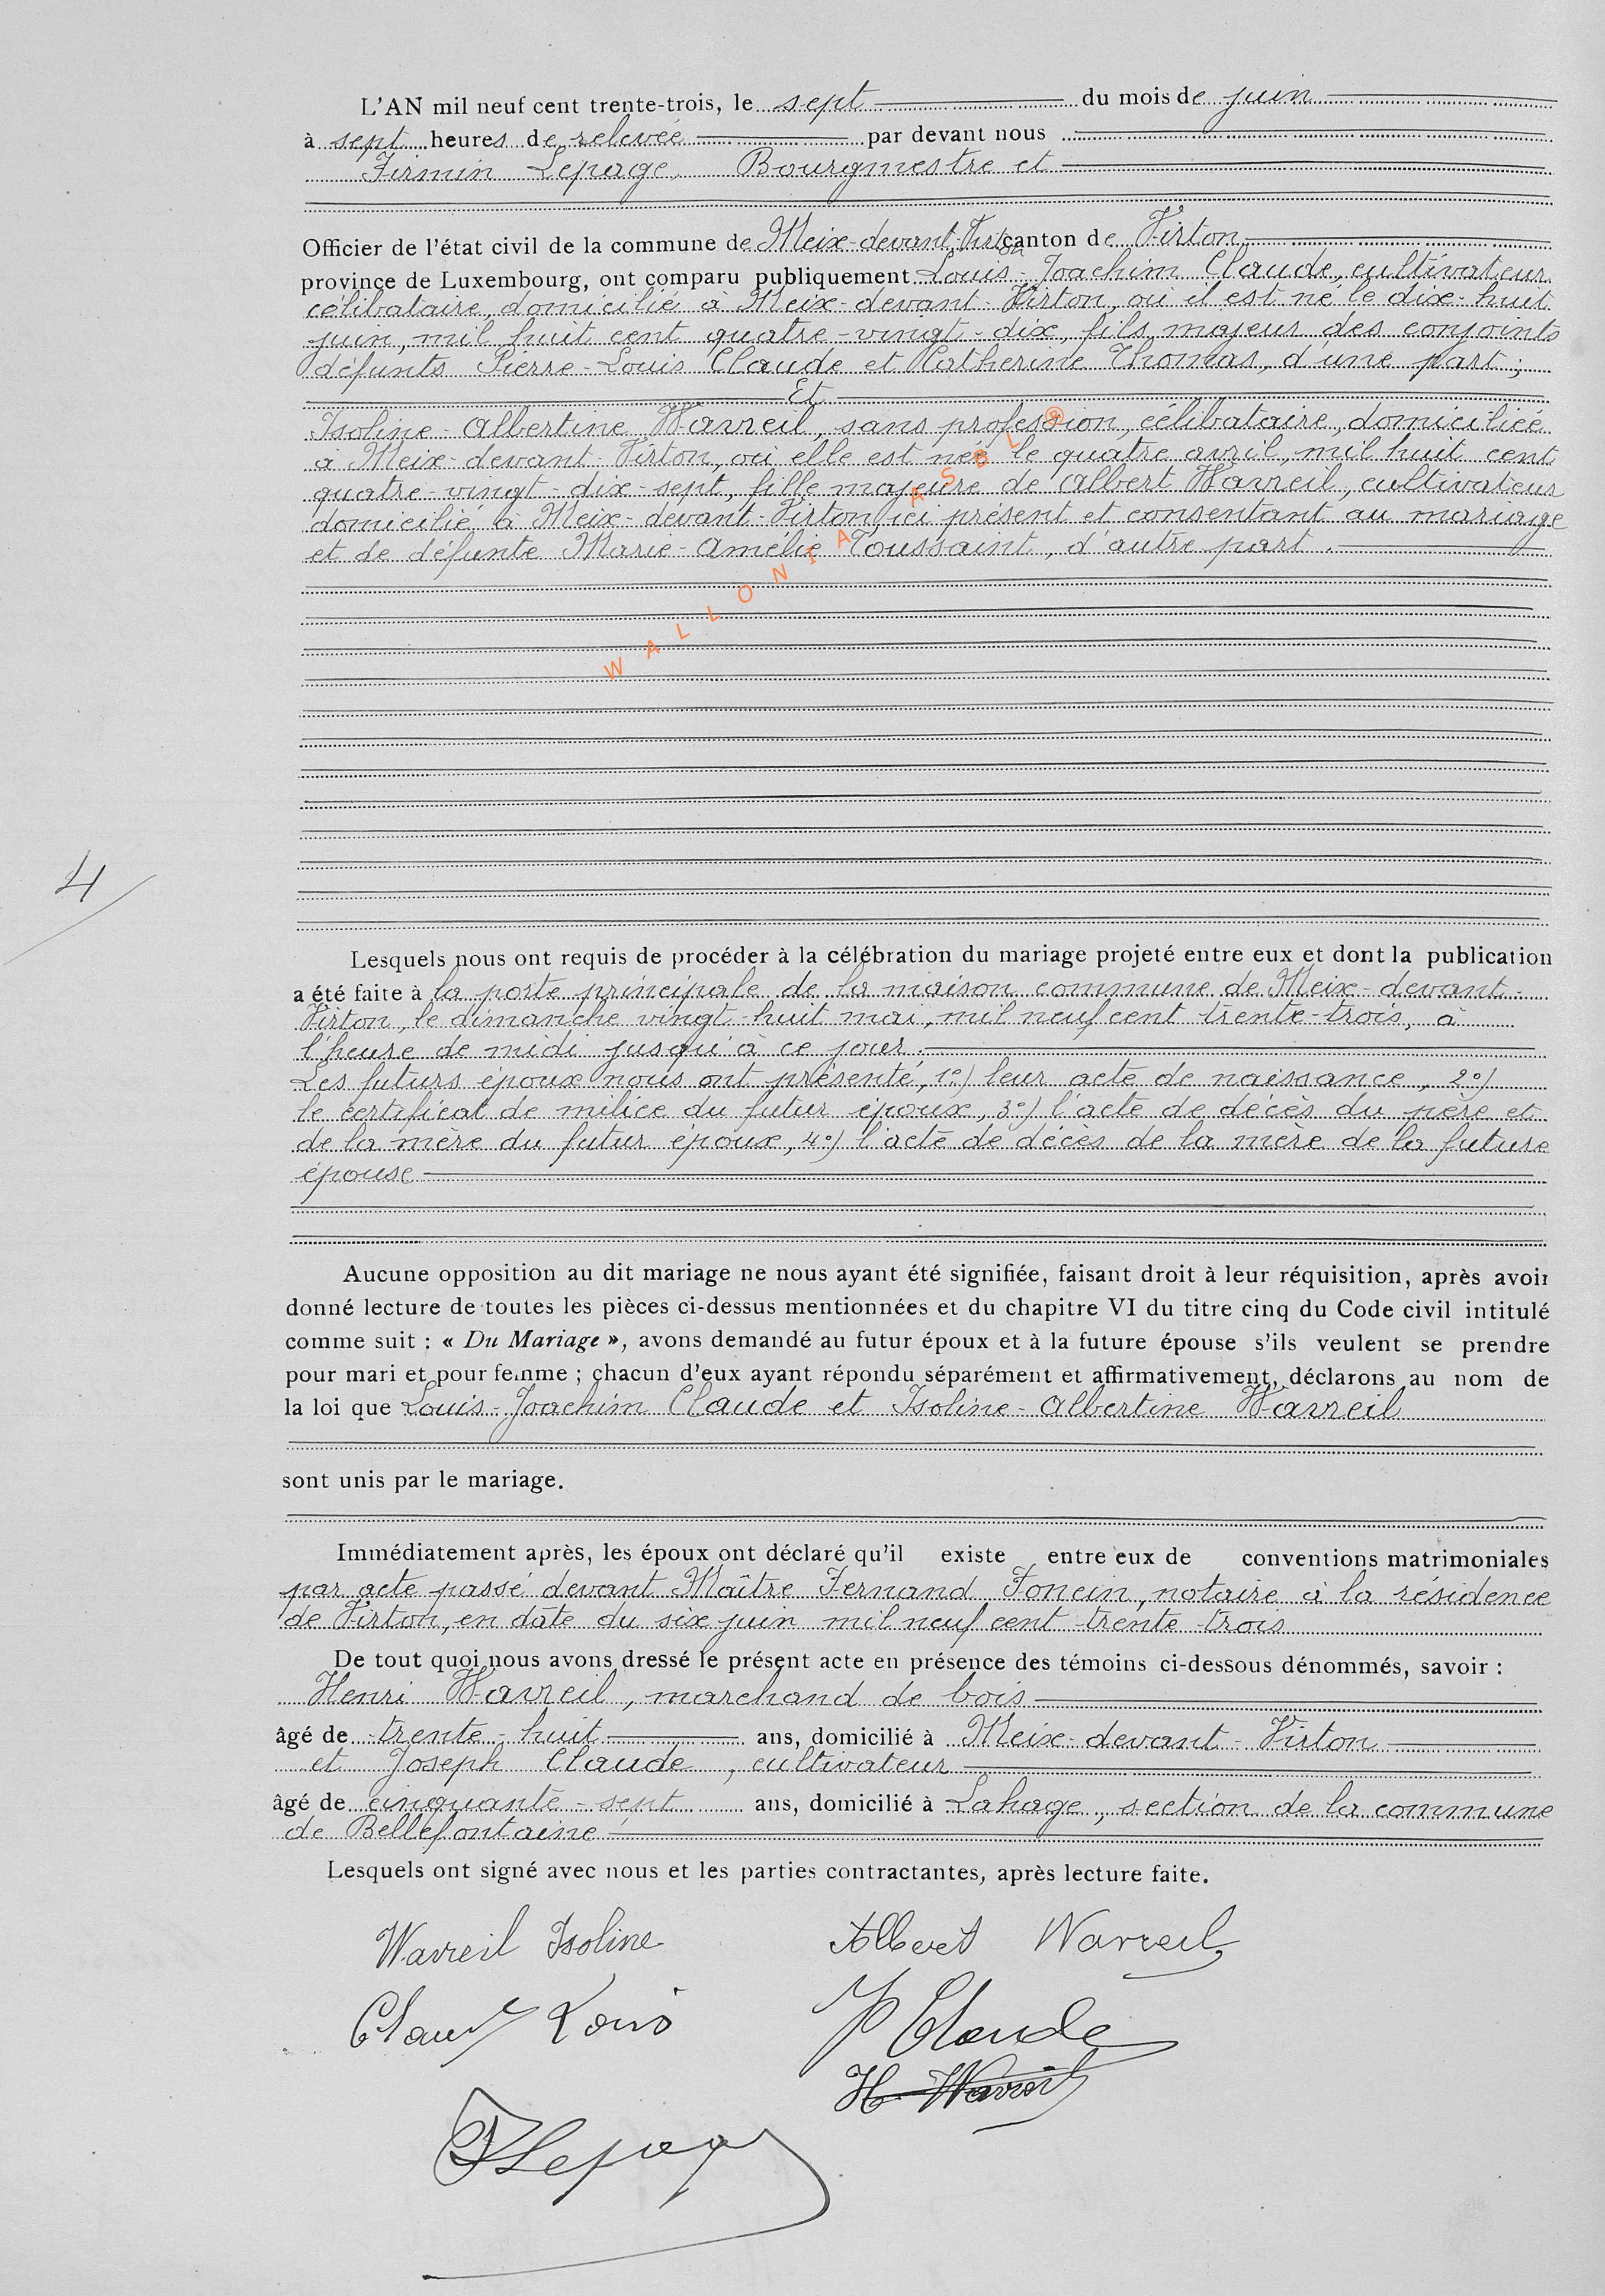 L'AN mil neuf cent trente-trois, le sept du mois de juin
à sept heures de relevée par devant nous
Firmin Lepage, Bourgmestre et
Officier de l'état civil de la commune de Meix-devant-Virton canton de Virton,
province de Luxembourg, ont comparu publiquement Louis-Joachim Claude, cultivateur
célibataire, domicilié à Meix-devant-Virton, où il est né le dix-huit
juin, mil huit cent quatre-vingt-dix, fils majeur des conjoints
défunts Pierre-Louis Claude et Catherine Thomas, d'une part;
Et
Isoline-Albertine Wavreil, sans profession, célibataire, domiciliée
à Meix-devant-Virton, où elle est née le quatre avril, mil huit cent
quatre-vingt-dix-sept, fille majeure de Albert Wavreil, cultivateur
domicilié à Meix-devant-Virton, ici présent et consentant au mariage
et de défunte Marie-Amélie Toussaint, d'autre part.
WALLONIA ASBL ®
4
Lesquels nous ont requis de procéder à la célébration du mariage projeté entre eux et dont la publication
a été faite à la porte principale de la maison commune de Meix-devant-
Virton, le dimanche vingt-huit mai, mil neuf cent trente-trois, à
l'heure de midi jusqu'à ce jour.
Les futurs époux nous ont présenté, 1°) leur acte de naissance, 2°)
le certificat de milice du futur époux, 3°) l'acte de décès du père et
de la mère du futur époux, 4°) l'acte de décès de la mère de la future
épouse
Aucune opposition au dit mariage ne nous ayant été signifiée, faisant droit à leur réquisition, après avoir
donné lecture de toutes les pièces ci-dessus mentionnées et du chapitre VI du titre cinq du Code civil intitulé
comme suit : « Du Mariage », avons demandé au futur époux et à la future épouse s'ils veulent se prendre
pour mari et pour femme ; chacun d'eux ayant répondu séparément et affirmativement, déclarons au nom de
la loi que Louis-Joachim Claude et Isoline-Albertine Wavreil
sont unis par le mariage.
Immédiatement après, les époux ont déclaré qu'il existe entre eux de conventions matrimoniales
par acte passé devant Maître Fernand Foncin, notaire à la résidence
de Virton, en date du six juin mil neuf cent trente trois
De tout quoi nous avons dressé le présent acte en présence des témoins ci-dessous dénommés, savoir :
Henri Wavreil, marchand de bois
âgé de trente-huit ans, domicilié à Meix-devant-Virton
et Joseph Claude, cultivateur
âgé de cinquante-sept ans, domicilié à Lahage, section de la commune
de Bellefontaine
Lesquels ont signé avec nous et les parties contractantes, après lecture faite.
Wavreil Isoline Albert Wavreil
Claude Louis J Claude
H Wavreil
F Lepage